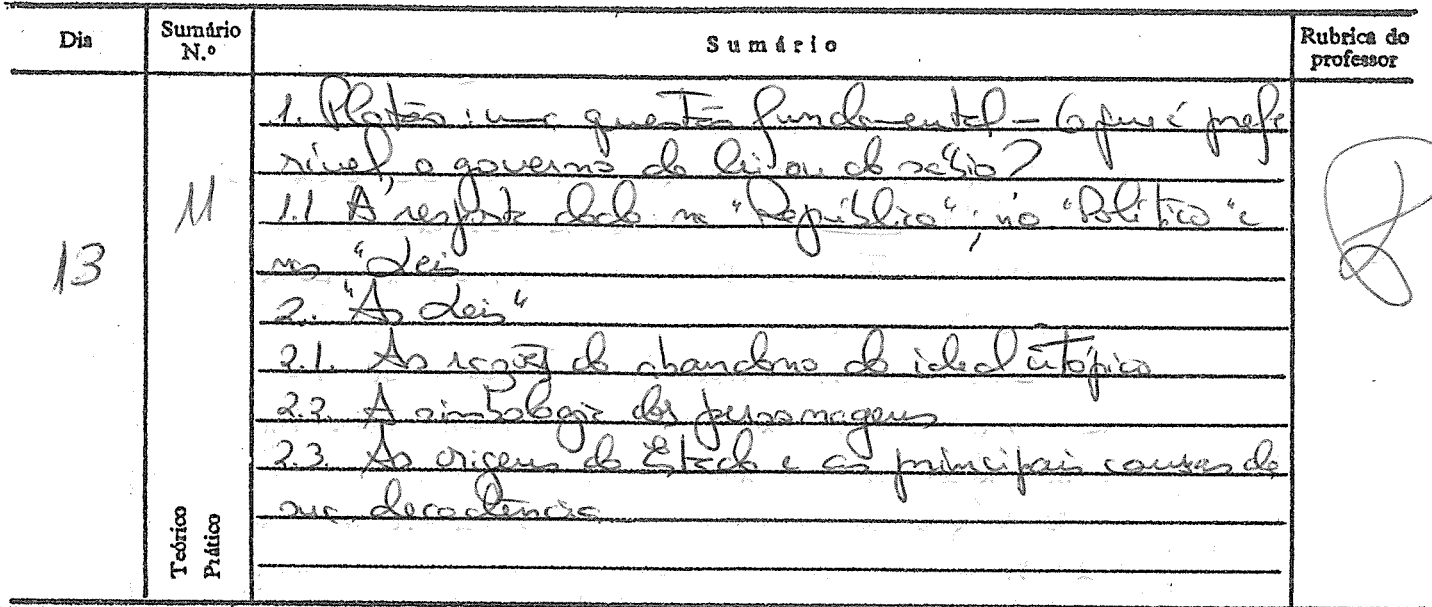 Dia
Sumário N.º
Sumário
Rubrica do professor
13
11
1. Platão: uma questão fundamental – o que é prefe
rível, o governo da lei ou do sábio?
1.1 A resposta dada na "República"; no "Político" e
nas "Leis
2. "As Leis"
2.1. As razões do abandono do ideal utópico
2.2. A simbologia dos personagens
2.3. As origens do Estado e as principais causas da
sua decadência
Teórico
Prático